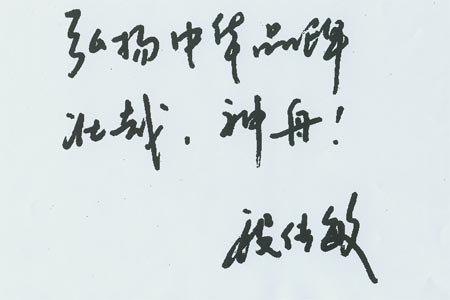 弘扬中华品牌
壮哉,神舟!
段仕敏